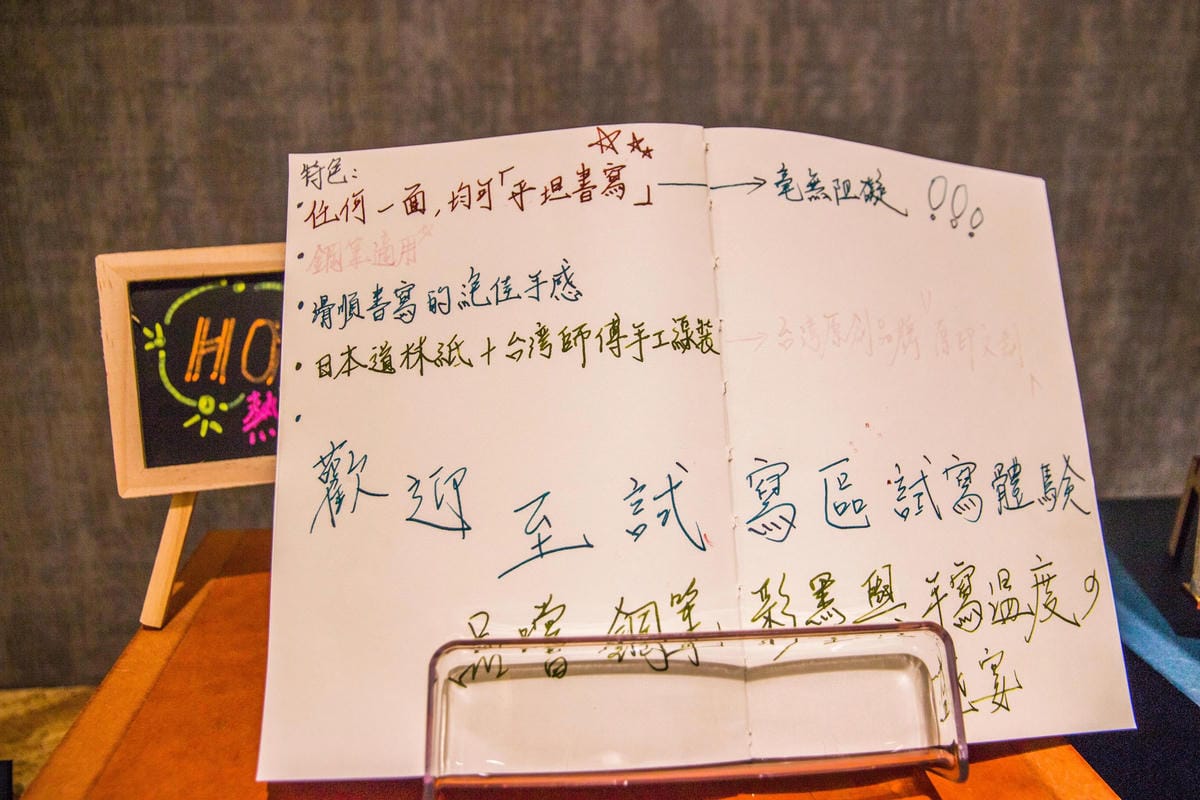 特色：
・任何一面，均可「平坦書寫」→毫無阻礙
・鋼筆適用
・滑順書寫的絕佳手感
・日本道林紙＋台湾師傅手工線裝→台湾原創品牌
・
歡迎至試寫區試寫體驗
品嚐鋼筆、彩墨與手寫温度の
宴
HO
熱